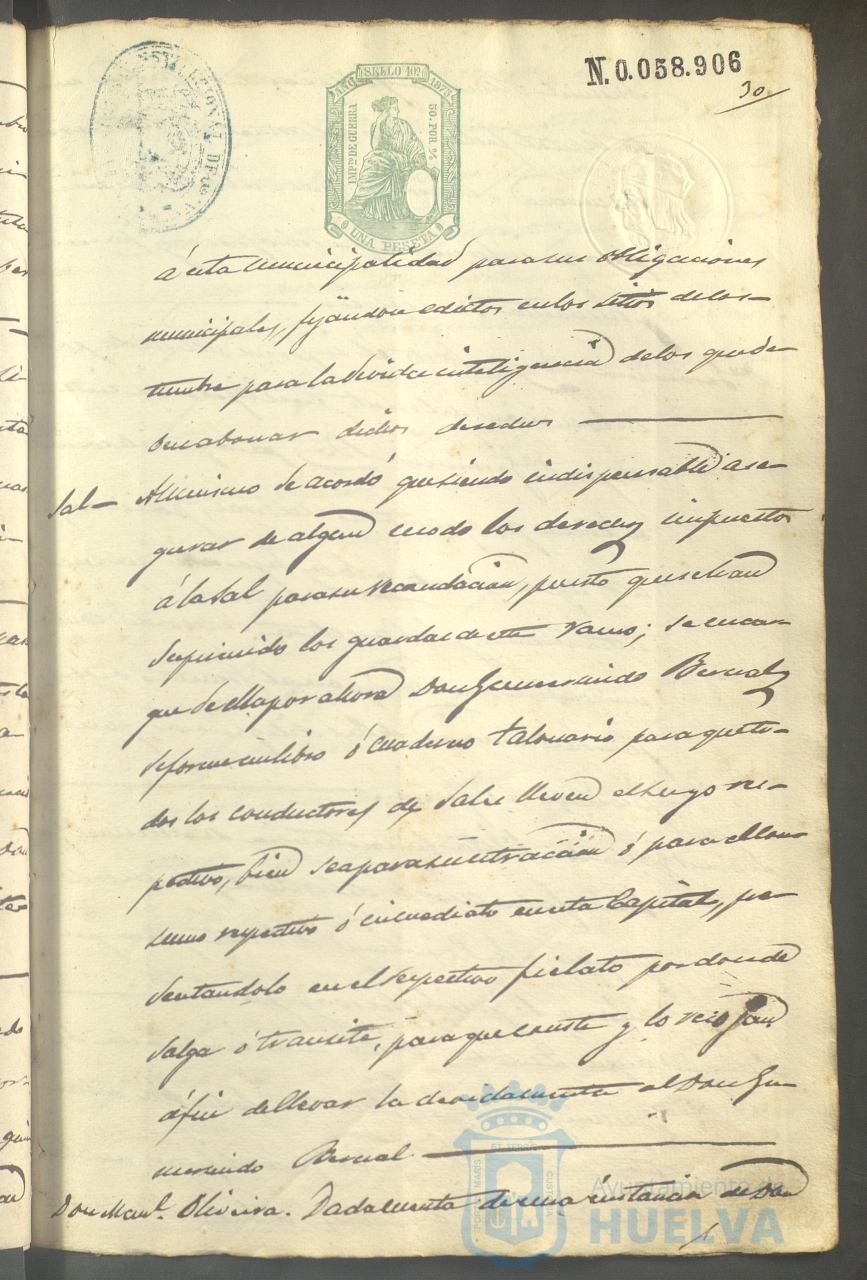 N. 0.058.906
30
AÑO SELLO 10º 1876
IMPto DE GUERRA
50 POR %
UNA PESETA
á esta municipalidad para sus obligaciones
municipales, fijándose edictos en los sitios de cos-
tumbre para la devida inteligencia de los que de-
ben abonar dichos derechos
Sal- Asimismo se acordó que siendo indispensable ase-
gurar de algun modo los derechos impuestos
á la Sal para su recaudacion, puesto que se han
suprimido los guardas de este ramo; se encar-
gue de ella por ahora Don Gumersindo Bernal
se forme un libro ó cuaderno talonario para que to-
dos los conductores de Sal lleven el suyo res-
pectivo, bien sea para su estraccion ó para el con-
sumo respectivo ó inmediato en esta Capital, pre-
sentandolo en el respectivo fielato por donde
salga ó transite, para que conste y lo recojan
á fin de llevar la devida cuenta el Don Gu-
mersindo Bernal
Don Manl. Oliveira. Dada cuenta de una instancia de Don
Ayuntamiento de
HUELVA